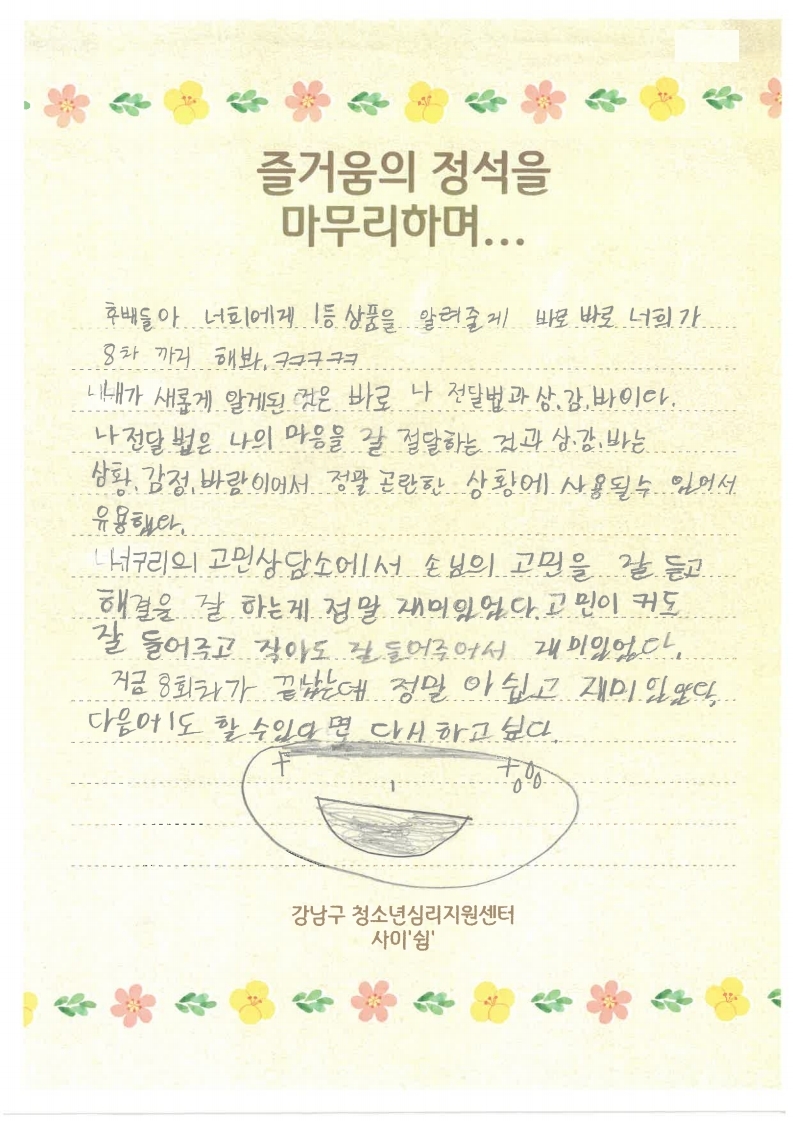 즐거움의 정석을
마무리하며...
후배들아 너희에게 1등 상품을 알려줄게 바로 바로 너희가
8차 까지 해봐.ㅋㅋㅋㅋㅋ
내가 새롭게 알게된 것은 바로 나 전달법과 상.감.바이다.
나전달법은 나의 마음을 잘 절달하는 것과 상.감.바는
상황.감정.바람이어서 정말 곤란한 상황에 사용될수 있어서
유용했다.
너구리의 고민상담소에서 손님의 고민을 잘 듣고
해결을 잘 하는게 정말 재미있었다.고민이 커도
잘 들어주고 작아도 잘들어주어서 재미있었다.
지금 8회차가 끝났는데 정말 아쉽고 재미있었다.
다음에도 할수있다면 다시하고싶다.
강남구 청소년심리지원센터
사이'쉼'